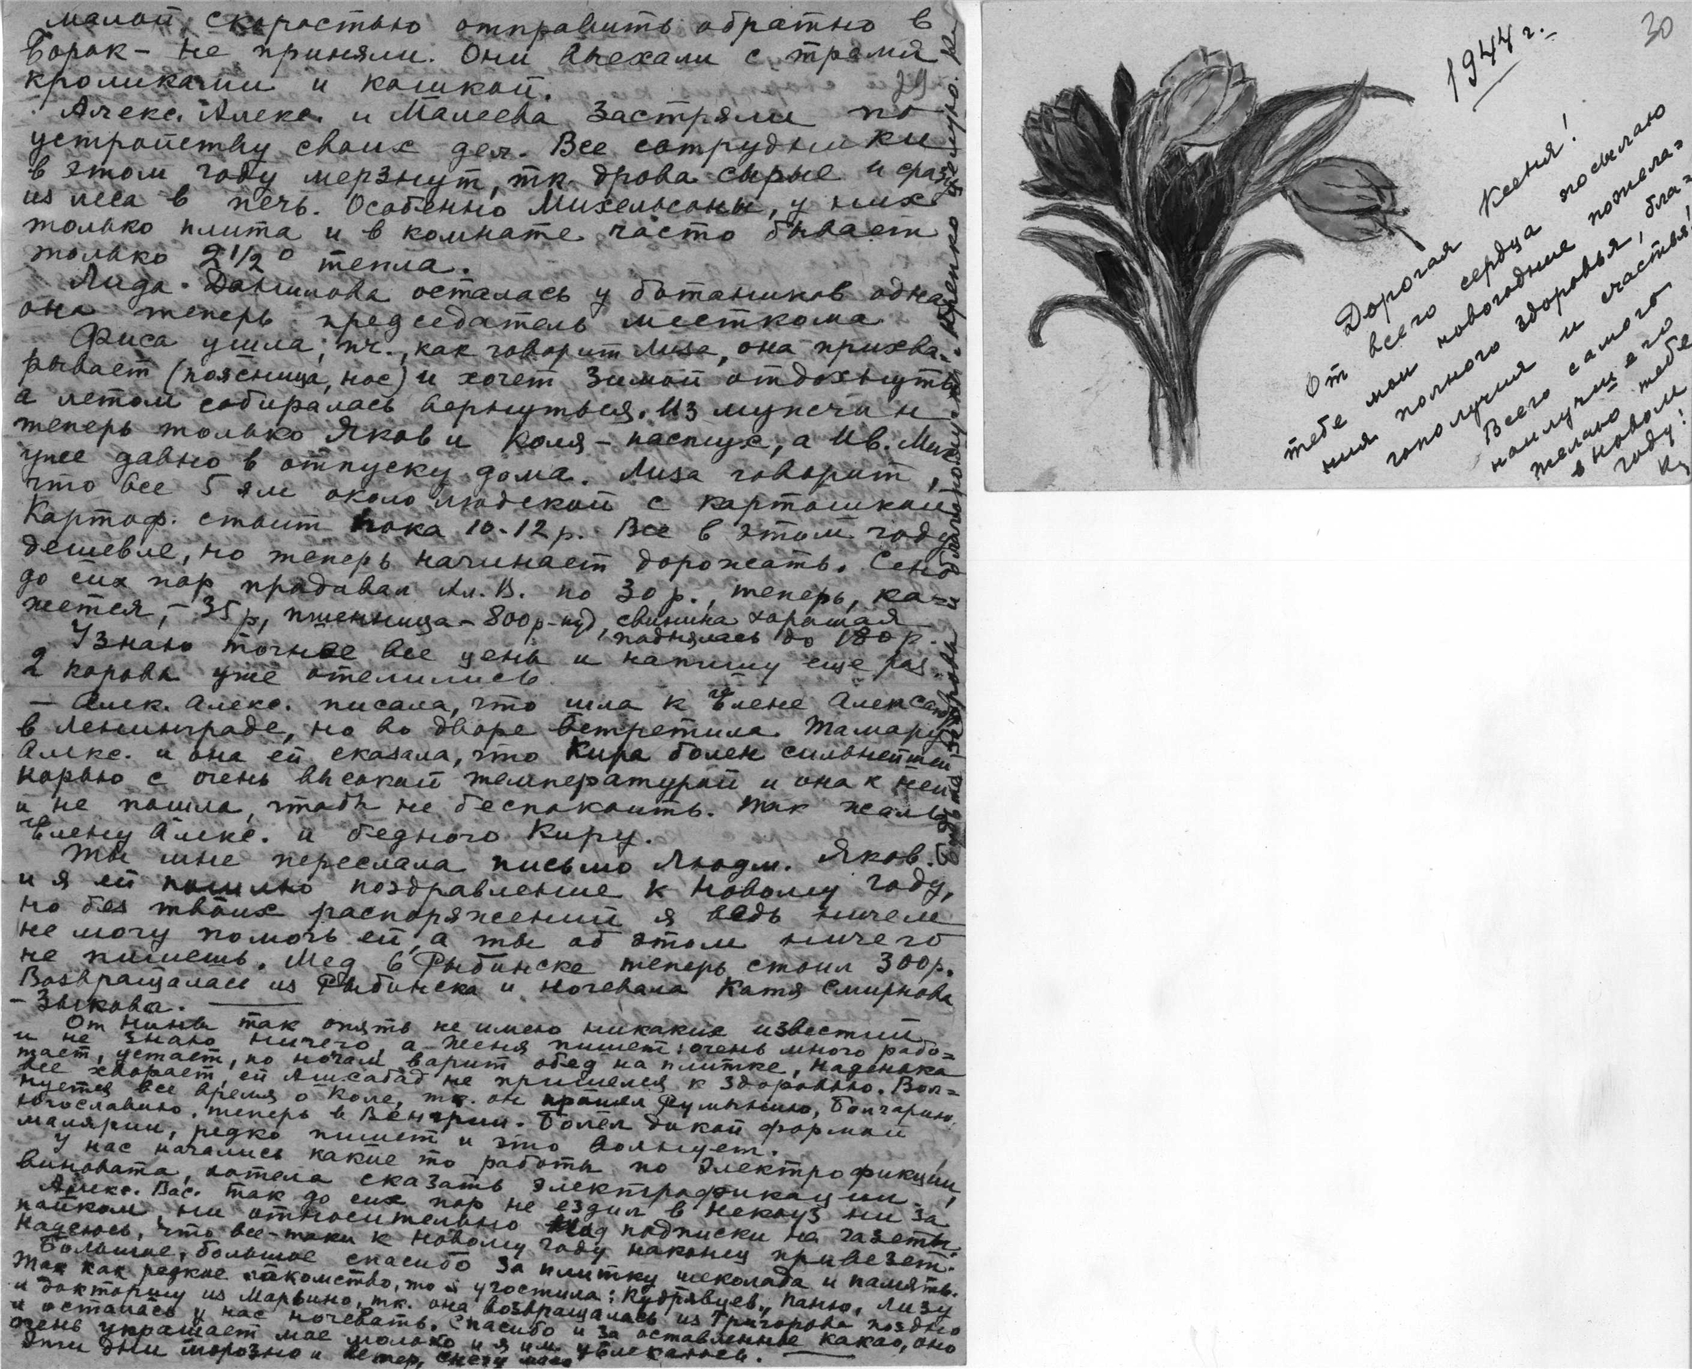 малой скоростью отправить обратно в
Борок – не приняли. Они выехали с тремя
кроликами и кошкой.
29
Алекс. Алекс. и Малеева застряли по
устройству своих дел. Все сотрудники
в этом году мерзнут, тк дрова сырые и сразу
из леса в печь. Особенно Михельсоны, у них
только плита и в комнате часто бывает
только 2 1/2 ° тепла.
Лида Данилова осталась у ботаников одна
она теперь председатель месткома
Фиса ушла, пч., как говорит Лиза, она прихва-
рывает (поясница, нос) и хочет зимой отдохнуть
а летом собиралась вернуться. Из мужчин
теперь только Яков и Коля – пастух, а Ив. Мих
уже давно в отпуску дома. Лиза говорит,
что все 5 ям около людской с картошкой
Картоф. стоит пока 10-12 р. Все в этом году
дешевле, но теперь начинает дорожать. Сено
до сих пор продавал Ал. В. по 30 р., теперь, ка-
жется, – 35 р, пшеница – 800 р – пуд, свинина хорошая
поднялась до 180 р.
Узнаю точнее все цены и напишу еще раз.
2 коровы уже отелились
– Алек. Алекс. писала, что шла к Елене Александр
в Ленинграде, но во дворе встретила Тамару
Алекс. и она ей сказала, что Кира болен сильнейшей
корью с очень высокой температурой и она к ней
и не пошла, чтобы не беспокоить. Так жаль
Елену Алекс. и бедного Киру.
Ты мне переслала письмо Людм. Яков.
и я ей пошлю поздравление к Новому году,
но без твоих распоряжений я ведь ничем
не могу помочь ей, а ты об этом ничего
не пишешь. Мед в Рыбинске теперь стоил 300 р.
Возвращалась из Рыбинска и ночевала Катя Смирнова
– Зыкова.
От Нины так опять не имею никаких известий
и не знаю ничего а Женя пишет: очень много рабо-
тает, устает, по ночам варит обед на плитке, Наденька
все хворает, ей Ашхабад не пришелся к здоровью. Вол-
нуется все время о Коле, т.к. он прошел Румынию, Болгарию,
Югославию, теперь в Венгрии. Болел дикой формой
малярии, редко пишет и это волнует.
У нас начались какие то работы по электрофикции,
виновата, хотела сказать электрофикации
Алекс. Вас. так до сих пор не ездил в Некоуз ни за
пайком ни относительно подписки на газеты.
Надеюсь, что все-таки к Новому году наконец привезет.
Большое, большое спасибо за плитку шоколада и память.
Так как редкое лакомство, то я угостила: Кудрявцев., Паню, Лизу
и докторшу из Марьино, т.к. она возвращалась из Григорова поздно
и осталась у нас ночевать. Спасибо и за оставленное какао, оно
очень украшает мое молоко и я им увлекаюсь.
Эти дни морозно и ветер, снегу мало
30
1944 г.
Дорогая Ксеня!
От всего сердца посылаю
тебе мои новогодние пожела-
ния полного здоровья, бла-
гополучия и счастья!
Всего самого
наилучшего
желаю тебе
в новом
году!